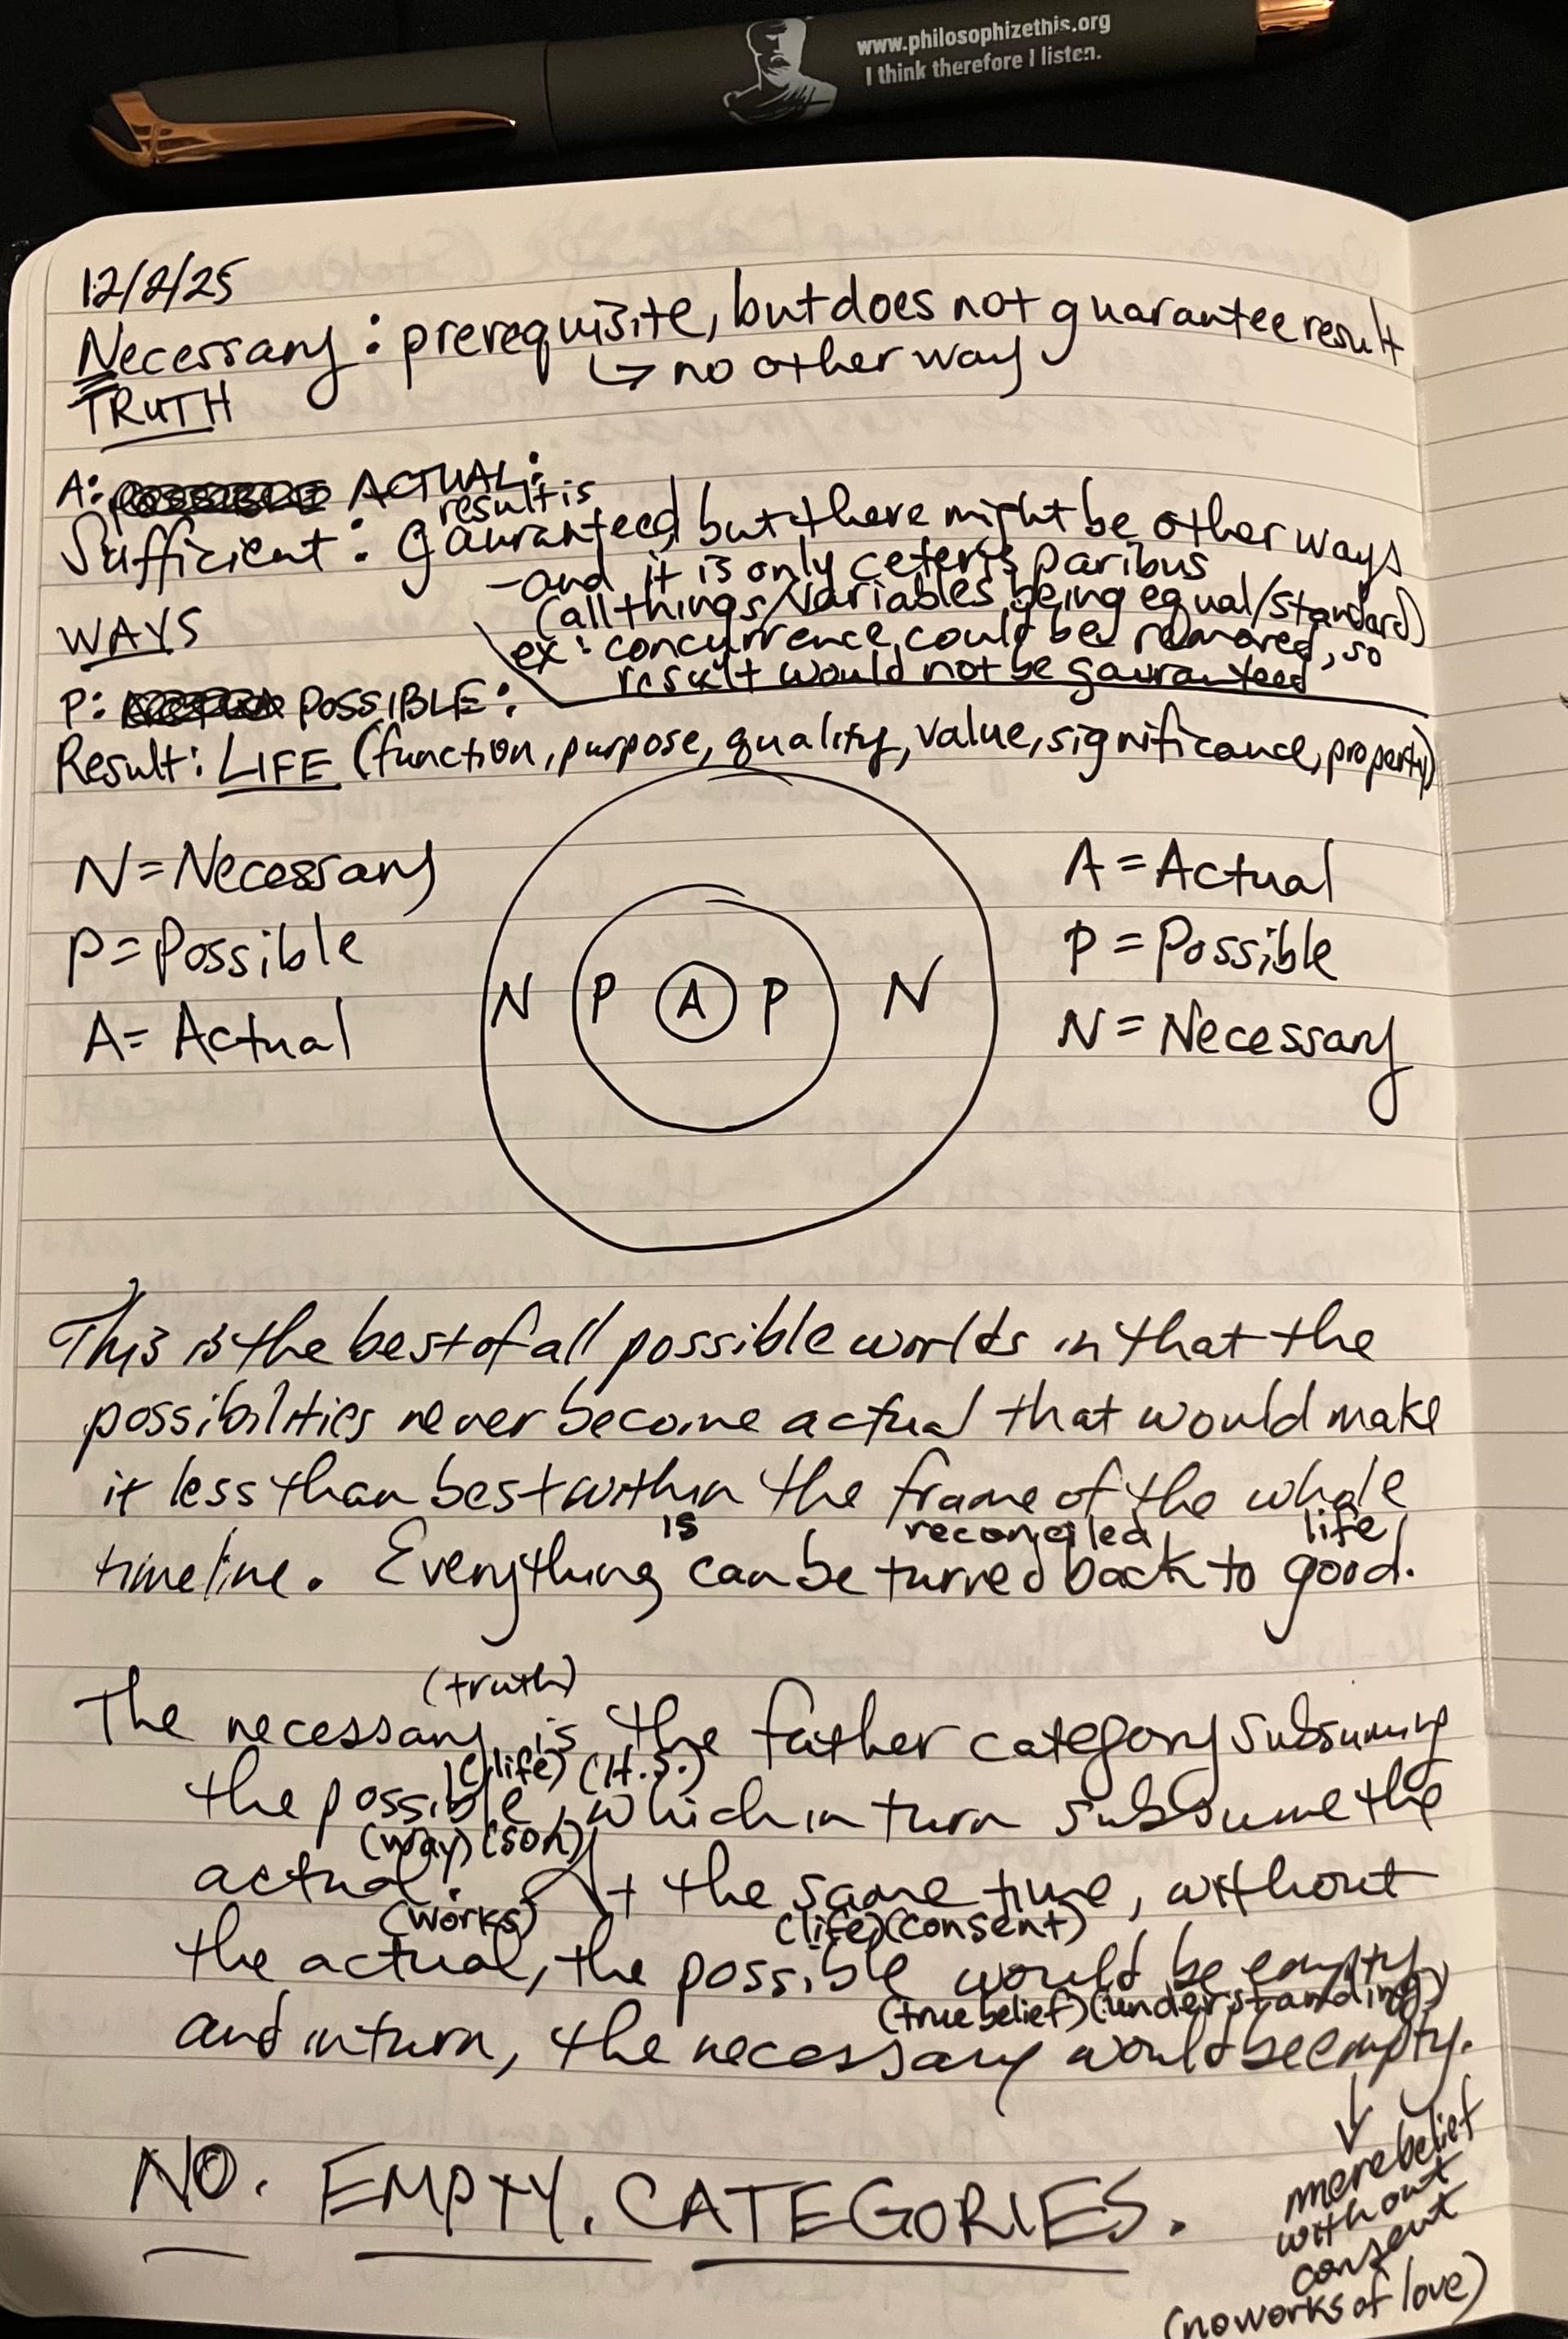 www.philosophizethis.org
I think therefore I listen.
12/2/25
Necessary: prerequisite, but does not guarantee result
↳ no other way
TRUTH
A: ACTUAL:
result is
Sufficient: gauranteed, but there might be other ways
- and it is only ceteris paribus
(all things/variables being equal/standard)
WAYS
ex: concurrence could be removed, so
result would not be gauranteed
P: POSSIBLE:
Result: LIFE (function, purpose, quality, value, significance, property)
N = Necessary
P = Possible
A = Actual
N P A P N
A = Actual
P = Possible
N = Necessary
This is the best of all possible worlds in that the
possibilities never become actual that would make
it less than best within the frame of the whole
is reconciled life
timeline. Everything can be turned back to good.
(truth)
The necessary is the father category subsuming
(life) (H.S.)
the possible, which in turn subsume the
(way) (son)
actual. At the same time, without
(works) (life) (consent)
the actual, the possible would be empty
(true belief) (understanding)
and in turn, the necessary would be empty.
↓
mere belief
without
consent
(no works of love)
NO. EMPTY. CATEGORIES.